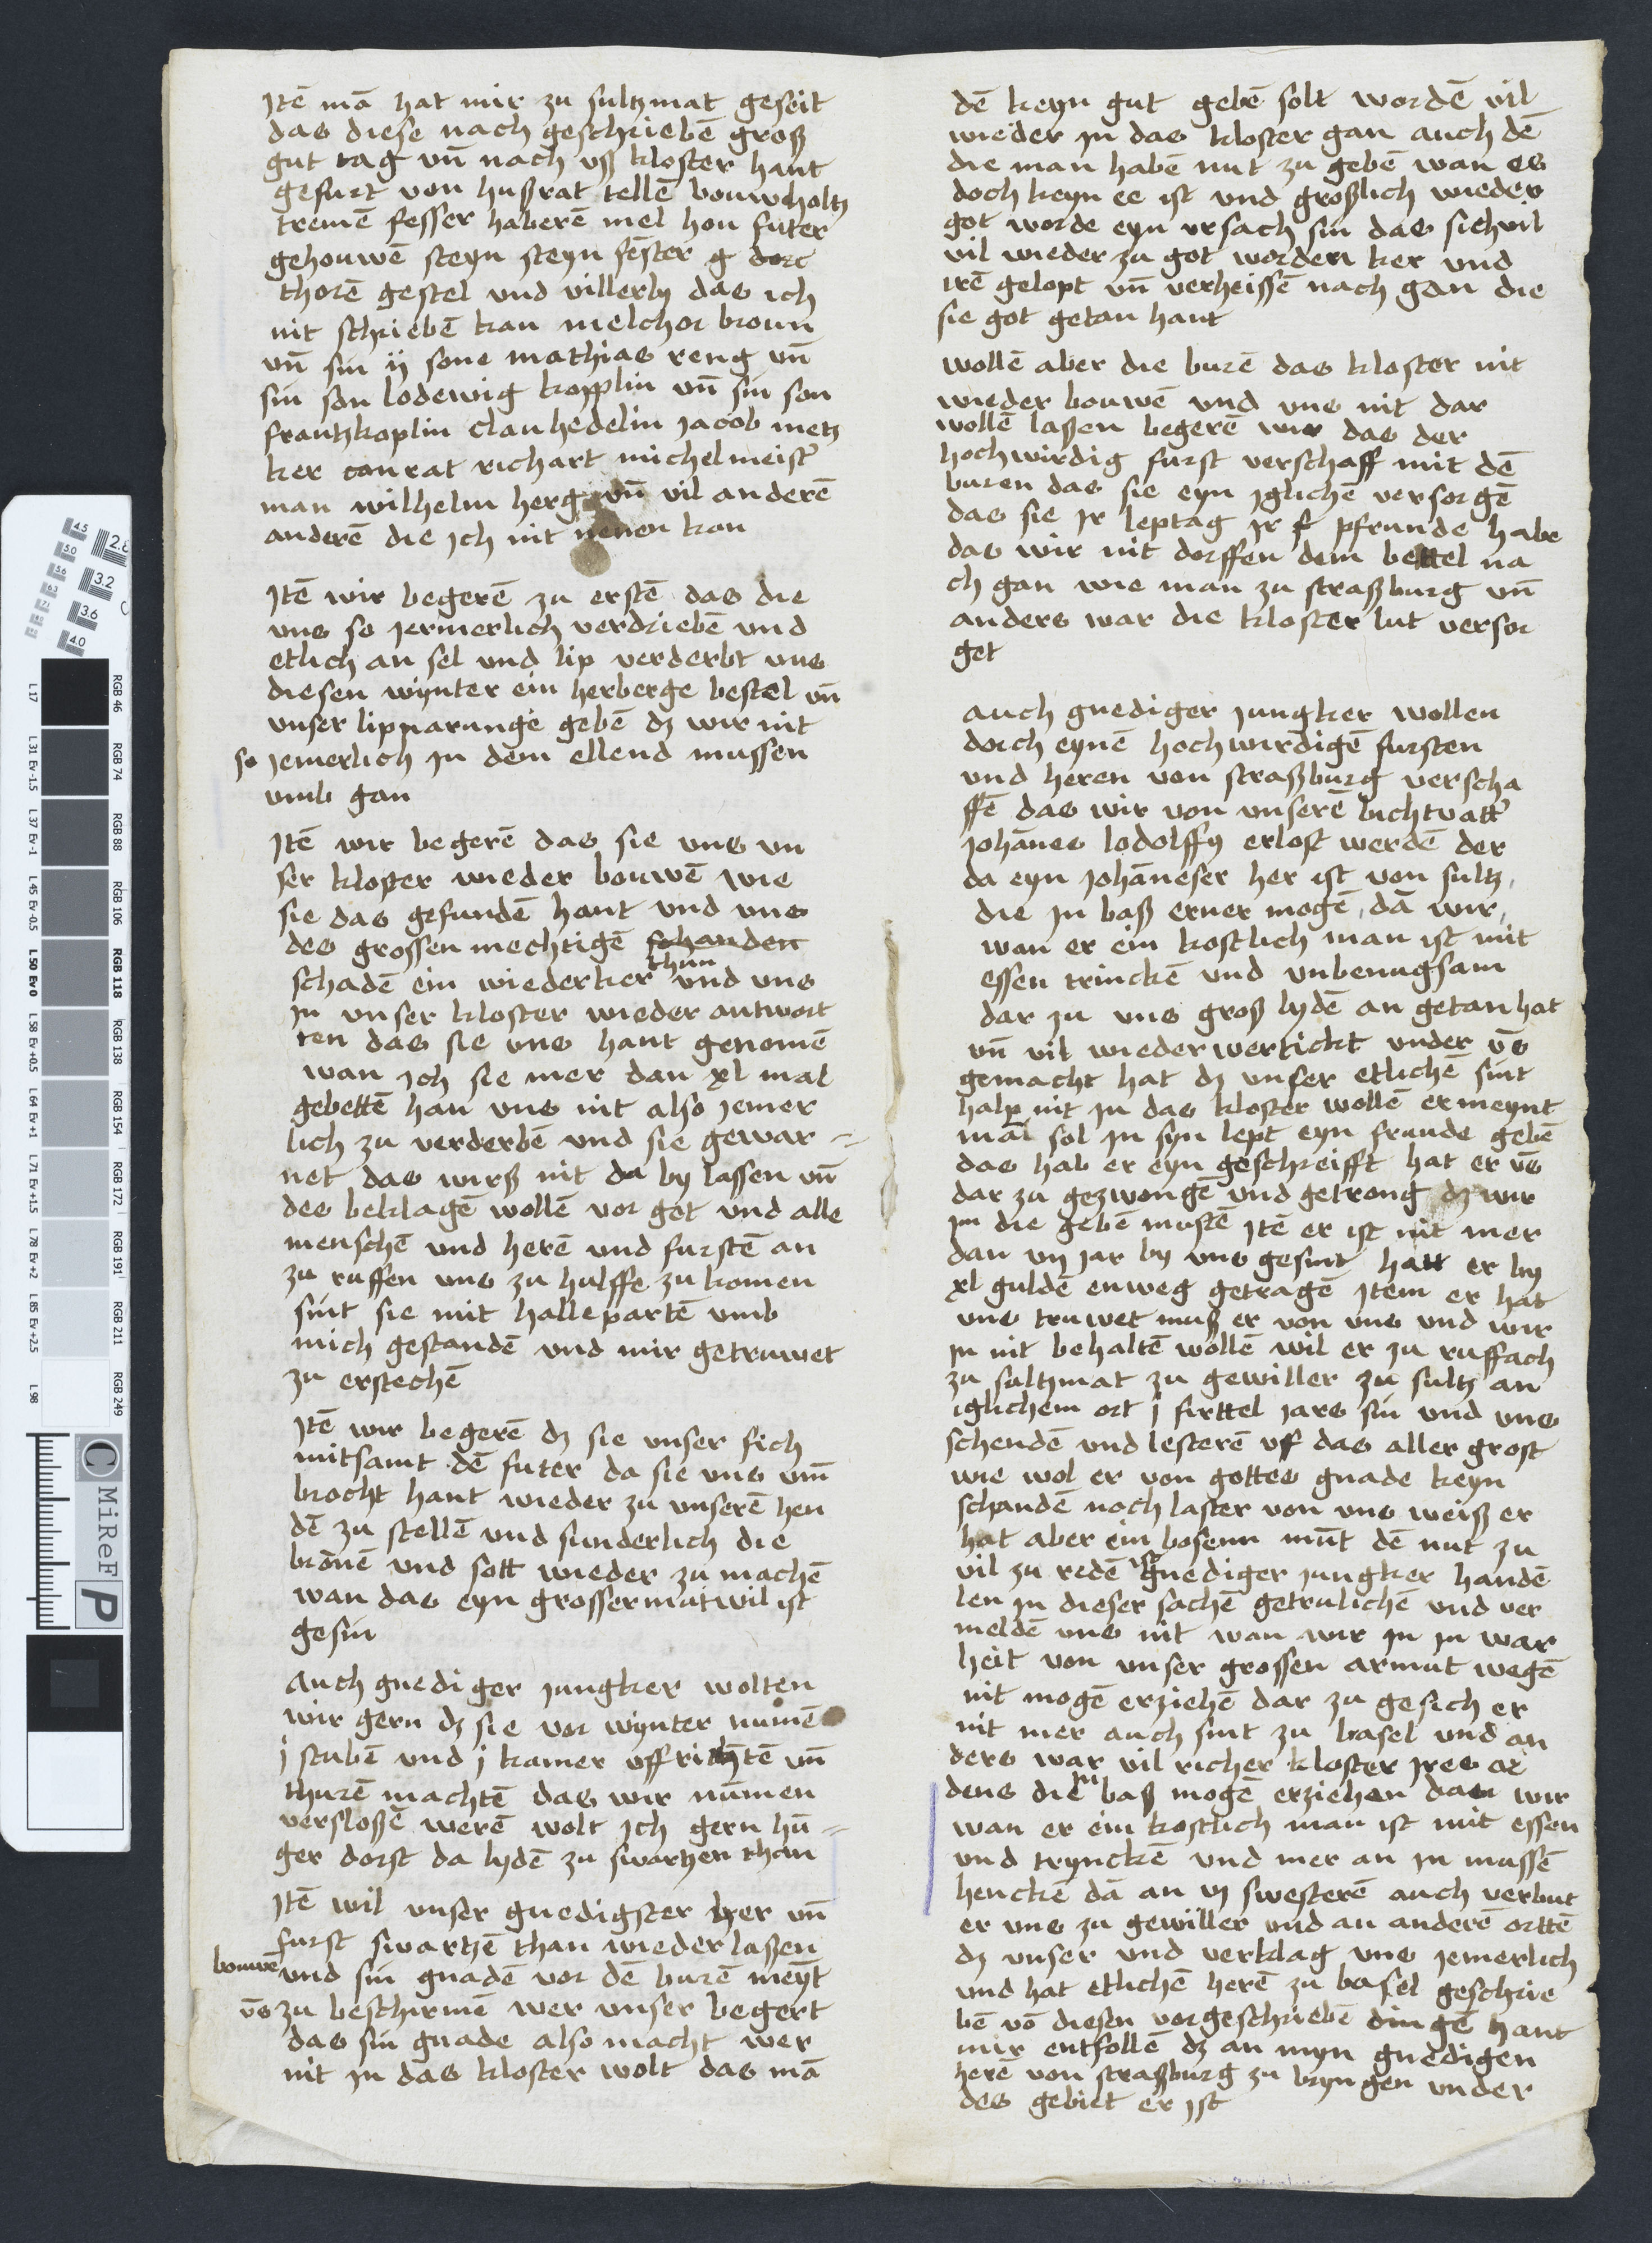 Jtē mā hat mir zu sultzmat geseit
das diese nach geschriebē groß
gut tag vn̄ nach vß kloster hant
gefurt von hußrat tellē bouwholtz
tremē fesser haberē mel hou futer
gehouwē steyn steyn fēster g dore
thorē gestel und villerly das ich
nit schriebē kan melchor broun
vn̄ sin ij sone mathias reng vn̄
sin son lodewig kopplin vn̄ sin son
frantzkoplin clauhedelin jacob metz
ker conrat richart michelmeist'
man wilhelm herg vn̄ vil anderē
anderē die ich nit nenen kan
Jtē wir begerē zu erstē das die
vns so jermerlich verdriebē und
etlich an sel und lip verderbt vns
diesen wynter ein herberge bestel vn̄
vnser lipnarunge gebē dz wir nit
so jemerlich jn dem ellend mussen
vmb gan
Jtē wir begerē das sie vns vn
ser kloster wieder bouwē wie
sie das gefundē hant und vns
des grossen mechtigē schanden
thun
schadē ein wiederker und vns
jn vnser kloster wieder antwort
ten das sie vns hant genomē
wan jch sie mer dan xl mal
gebettē han vns nit also jemer
lich zu verderbē und sie gewar=
net das wirß nit da by lassen vn̄
des beklagē wollē vor got und alle
menschē und herē und furstē an
zu ruffen vns zu hulffe zu komen
sint sie mit hallepartē vmb
mich gestandē und mir getruwet
zu erstechē
Jtē wir begerē dz sie vnser fich
mitsamt dē futer da sie vns vm̄
brocht hant wieder zu vnserē hen
dē zu stellē und sunderlich die
bronē und sott wieder zu machē
wan das eyn grossermutwil ist
gesin
Auch gnediger jungker wolten
wir gern dz sie vor wynter numē
j stubē und j kamer vffrichtē vn̄
thurē machtē das wir nūmen
verslossē werē wolt jch gern hū=
ger dorst da lydē zu swartzen than
Jtē wil vnser gnedigster her vn̄
furst swartzē than wieder laßen
bouwē und sin gnadē vor dē burē meyt
vs̄ zu beschirmē wer vnser begert
das sin gnade also macht wer
nit jn das kloster wolt das mā
dē keyn gut gebē solt wordē vil
wieder jn das kloster gan auch dē
die man habē nut zu gebē wan es
doch keyn ee ist und groslich wieder
got worde eyn vrsach sin das siehvil
vil wieder zu got worden ker und
irē gelopt vn̄ verheissē nach gan die
sie got getan hant
wollē aber die burē das kloster nit
wieder bouwē und vns nit dar
wollē lassen begerē wir das der
hochwirdig furst verschaff mit dē
buren das sie eyn jglichē versorgē
das sie jr leptag jr f pfrunde habe
das wir nit dorffen dem bettel na
ch gan wie man zu straßburg vn̄
anders war die kloster lut versor
get
auch gnediger jungker wollen
dorch eynē hochwirdigē fursten
und heren von straßburg verscha
ffē das wir von vnserē bichtvatt'
johānes lodolffy erlost werdē der
da eyn johāneser her ist von sultz,
die jn baß erner mogē, dā wir,
wan er ein kostlich man ist mit
essen trinckē und vnbenugsam
dar zu vns groß lydē an getan hat
vn̄ vil wiederwertickt vnder vs̄
gemacht hat dz vnser etlichē sint
halp nit jn das kloster wollē er meynt
mā sol jn syn lept eyn frunde gebē
das hab er eyn geschreifft hat er vs̄
dar zu gezwongē und getrong dz wir
jm die gebē mustē Jtē er ist nit mer
dan vij jar by vns gesint hatt er by
xl guldē enweg getragē Jtem er hat
vns truwet muß er von vns und wir
jn nit behaltē wollē wil er zu ruffach
zu sultzmat zu gewiller zu sultz an
iglichem ort j firttel jars sin und vns
schendē und lesterē vf das aller grost
wie wol er von gottes gnade keyn
schandē noch laster von vns weiß er
hat aber ein bosenn mūt dē nut zu
vil zu redē gnediger jungker handē
len jn dieser sachē getrulichē und ver
meldē vns nit wan wir jn jn war
heit von vnser grossen armut wegē
nit mogē erziehē dar zu gesich er
nit mer auch sint zu basel und an
ders war vil richer kloster jres or
dens die baß mogē erziehen dan wir
wan er ein kostlich man ist mit essen
und trynckē und mer an jn mussē
henckē dā an vj swesterē auch verbut
er vns zu gewiller und an anderē orttē
dz vnser und verklag vns jemerlich
und hat etlichē herē zu basel geschrie
bē vō diesen vorgeschriebē dingē hant
mir entfollē dz an myn gnedigen
herē von straßburg zu bryngen vnder
des gebiet er jst